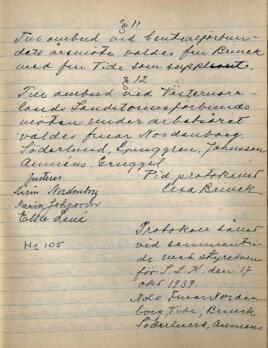 § 11
Till ombud vid Centralförbun-
dets årsmöte valdes fru Brinck
med fru Tide som suppleant.
§ 12
Till ombud vid Västernorr-
lands Landstormsförbunds
möten under arbetsåret
valdes fruar Nordenborg,
Söderlund, Ljunggren, Johnsson
Annéus,
Justeras
Vid protokollet
Elsa Brinck
Nordenborg
Karin
Ebba
No 105
Protokoll hållet
vid sammanträ-
de med styrelsen
för S.L.K. den 17
okt 1939.
Nde fruar Norden-
borg, Brinck
Söderlund, Annéus